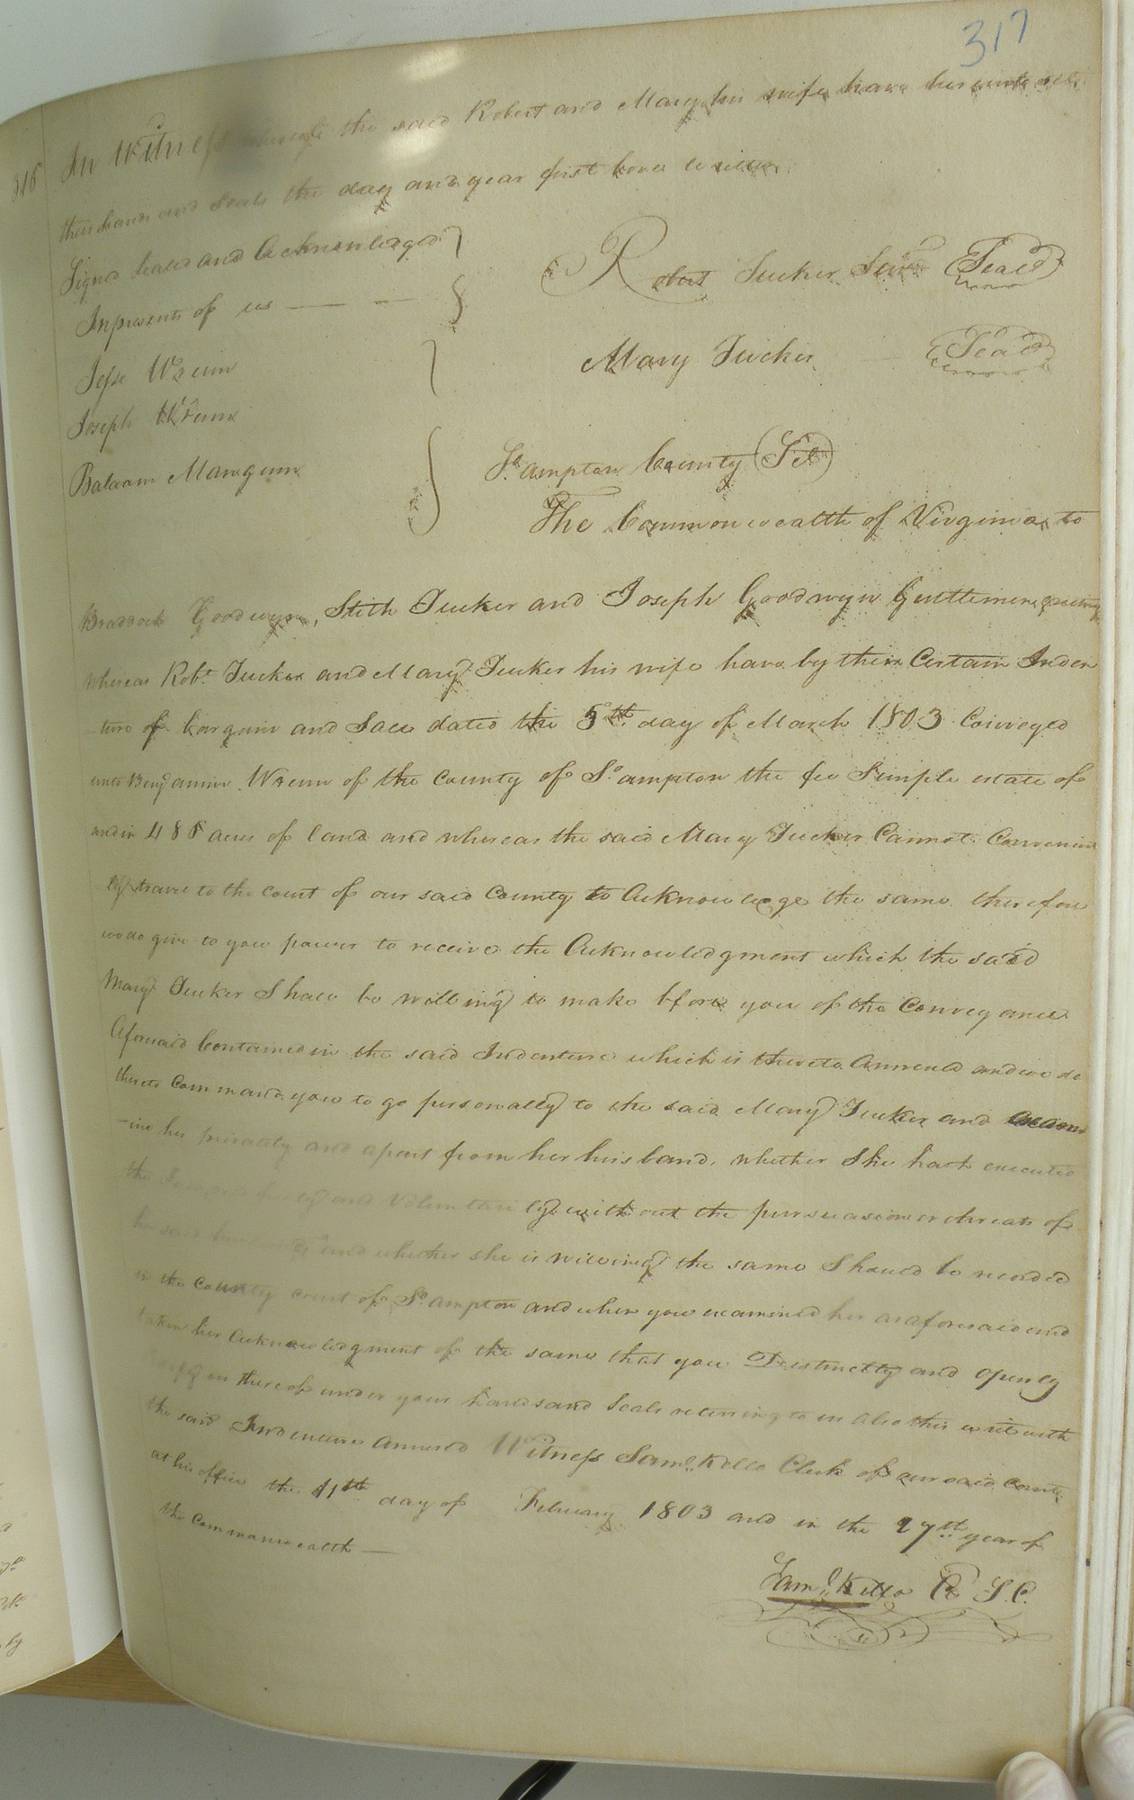 317
316
In Witness whereof the said Robert and Mary his wife have hereunto set
their hands and seals the day and year first bove written
Signed Sealed and Acknowledged
Inpresents of us
Robert Tucker Senr Seal
Jesse Wrenn
Mary Tucker Seal
Joseph Wrenn
Balaam Mangum
So.ampton County (Sct)
The Commonwealth of Virginia to
Braddock Goodwynn, Stith Tucker and Joseph Goodwyn Gentlemen, greeting
whereas Robt. Tucker and Mary Tucker his wife have by their Certain Inden
ture of bargain and Sale dated the 5th day of March 1803 Conveyed
unto Benjamin Wrenn of the County of So.ampton the fee Simple estate of
and in 488 acres of land and whereas the said Mary Tucker Cannot Convenient
ly travel to the court of our said County to Acknowledge the same therefore
we do give to you power to receive the Acknowledgment which the said
Mary Tucker Shall be willing to make bfore you of the Conveyance
Aforesaid Contained in the said Indenture which is thereto Annexed and we do
thereto Command you to go personally to the said Mary Tucker and Exam
-ine her privately and apart from her husband, whether She hath executed
the Same freely and Voluntari ly without the pursuasions or threats of
he said husband and whether she is willing the same Should be recorded
in the County court of So.ampton and when you examined her as aforesaid and
taken her Acknowledgment of the same that you Destinctly and openly
us thereof under your hands and Seals returning to us also this writ with
the said Indenture annexed Witness Saml. Kello Clerk of our said County
at his office the 11th day of February 1803 and in the 27th year of
the Commonwealth —
Saml. Kello C S.C.